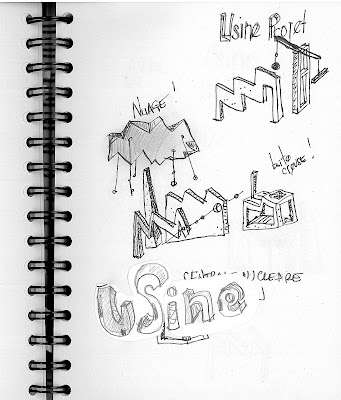 Usine Projet
NUAGE !
boîte
creuse !
CENTRALE NUCLEAIRE
usine